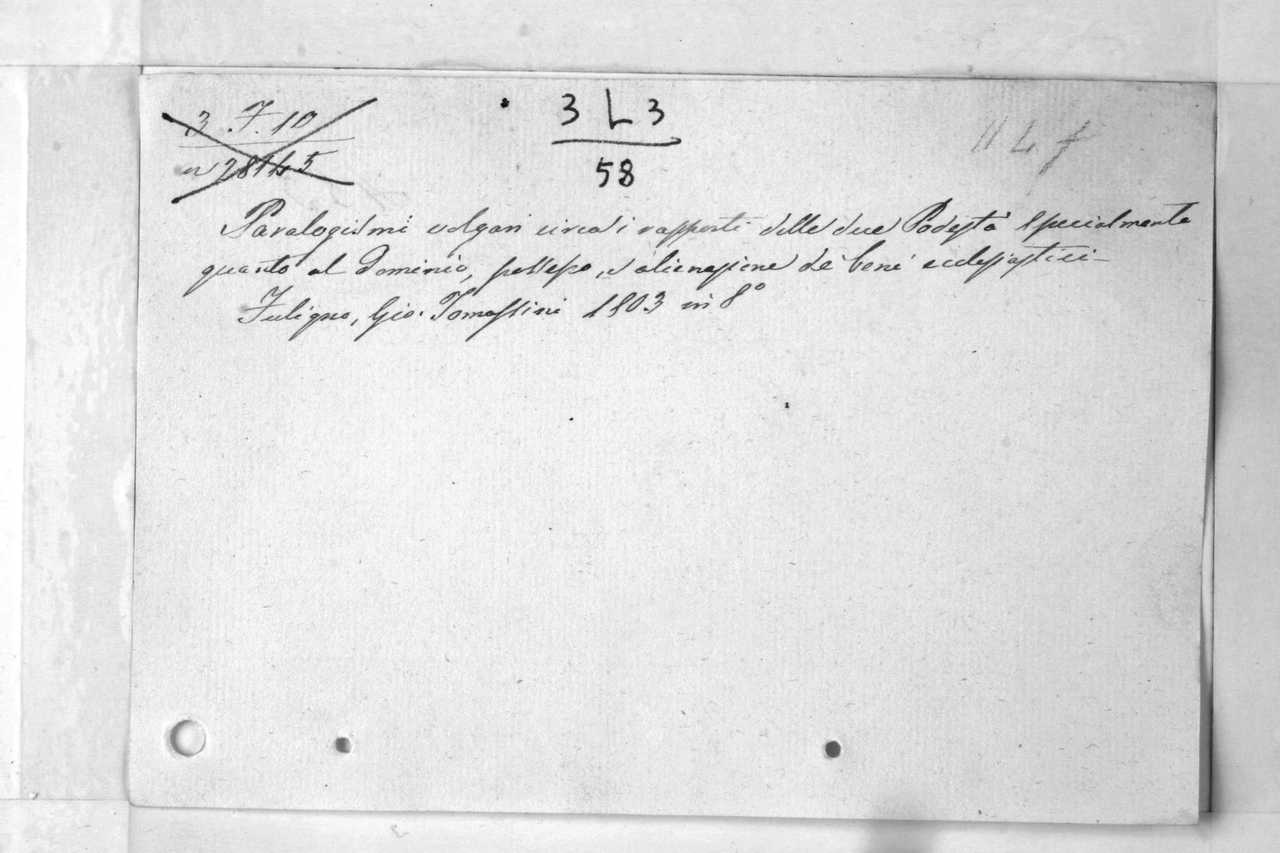 3. F. 10
n 28145
3 L 3
58
Paralogismi volgari circa i rapporti delle due Podestà specialmente
quanto al Dominio, possesso, d'alienazione de' beni ecclesiastici
Fuligno, Gio. Tomassini 1803 in 8°